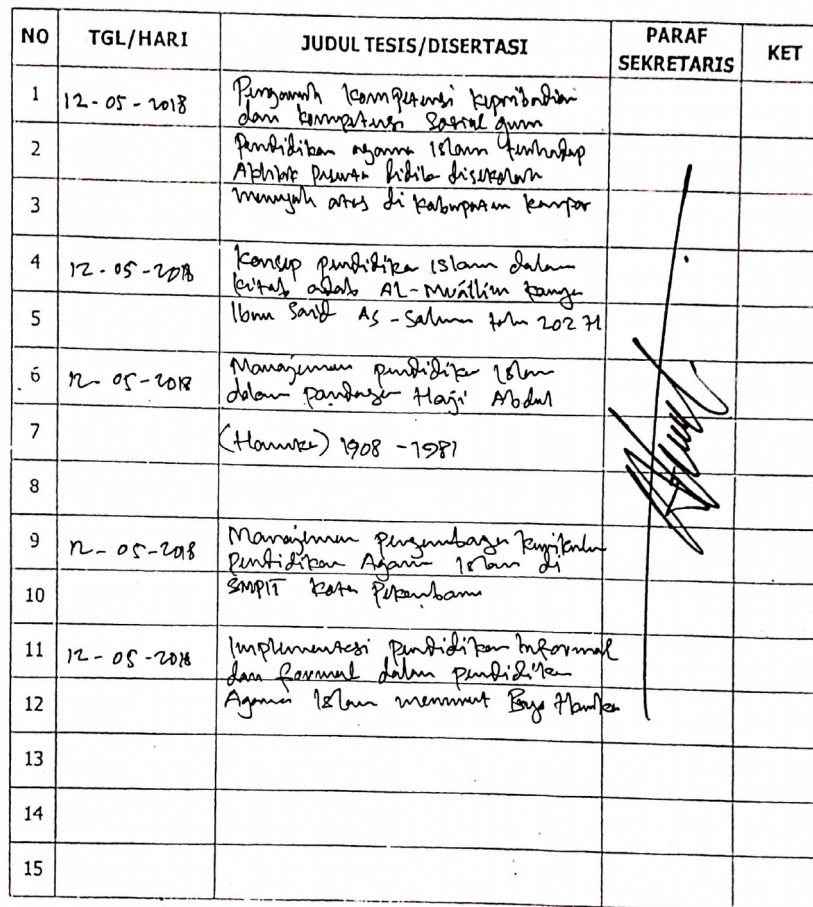 NO TGL/HARI JUDUL TESIS/DISERTASI PARAF SEKRETARIS KET
1 12-05-2018 Pengaruh kompetensi kepribadian
dan kompetensi sosial guru
2 Pendidikan agama Islam terhadap
Akhlak peserta didik disekolah
3 menengah atas di kabupaten kampar
4 12-05-2018 Konsep pendidikan Islam dalam
kitab adab Al-Muallim
5 Ibnu As-Salman 202
6 12-05-2018 Manajemen pendidikan Islam
dalam pandangan Haji Abdul
7 (Hamka) 1908 - 1981
8
9 12-05-2018 Manajemen pengembangan kurikulum
Pendidikan Agama Islam di
10 SMPIT Kota Pekanbaru
11 12-05-2018 Implementasi pendidikan Informal
dan formal dalam pendidikan
12 Agama Islam menurut Buya Hamka
13
14
15